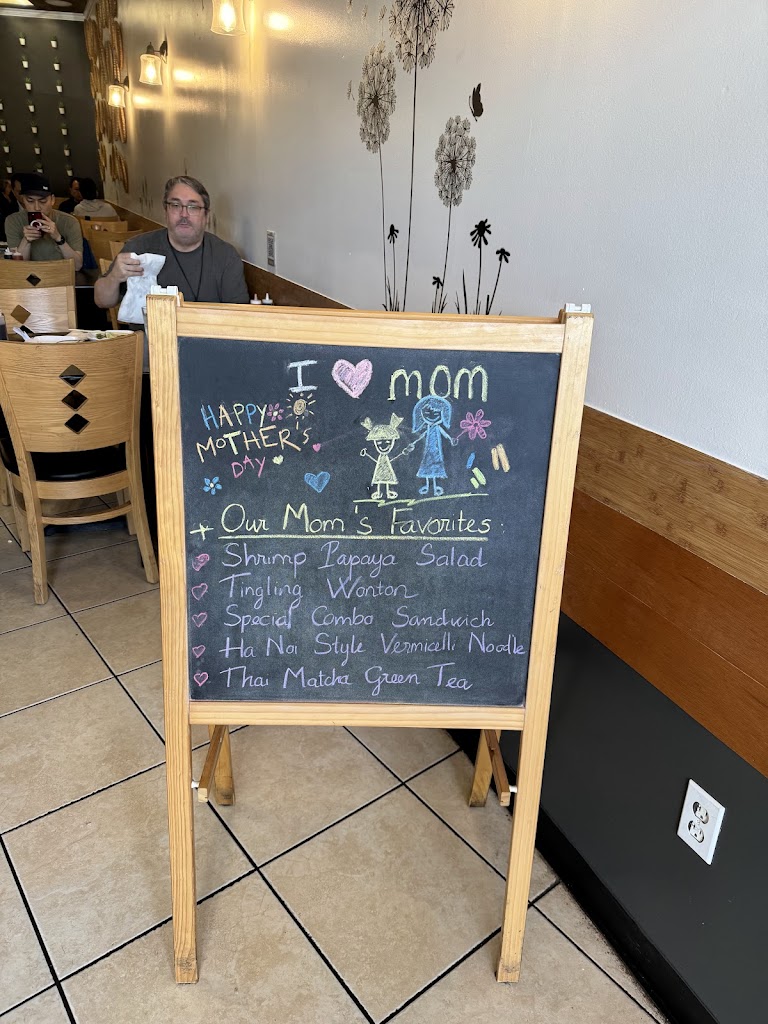 I ♥ MOM
HAPPY
MOTHER'S
DAY
Our Mom's Favorites:
Shrimp Papaya Salad
Tingling Wonton
Special Combo Sandwich
Ha Noi Style Vermicelli Noodle
Thai Matcha Green Tea